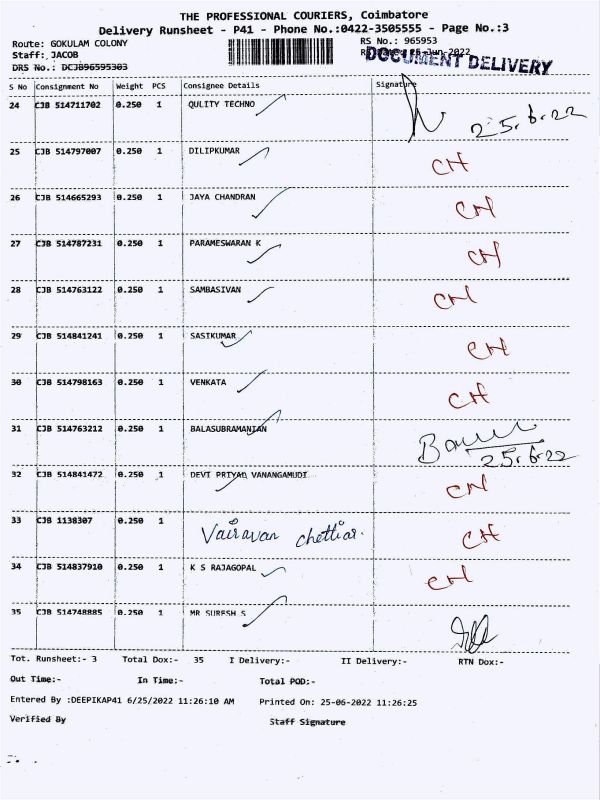 THE PROFESSIONAL COURIERS, Coimbatore
Delivery Runsheet - P41 - Phone No.:0422-3505555 - Page No.:3
Route: GOKULAM COLONY RS No.: 965953
Staff: JACOB 25-Jun-2022
DRS No.: DCJB96595303 DOCUMENT DELIVERY
S No Consignment No Weight PCS Consignee Details Signature
24 CJB 514711702 0.250 1 QULITY TECHNO 25.6.22
25 CJB 514797007 0.250 1 DILIPKUMAR CH
26 CJB 514665293 0.250 1 JAYA CHANDRAN CH
27 CJB 514787231 0.250 1 PARAMESWARAN K CH
28 CJB 514763122 0.250 1 SAMBASIVAN CH
29 CJB 514841241 0.250 1 SASIKUMAR CH
30 CJB 514798163 0.250 1 VENKATA CH
31 CJB 514763212 0.250 1 BALASUBRAMANIAN
25.6.22
32 CJB 514841472 0.250 1 DEVI PRIYAL VANANGAMUDI CH
33 CJB 1138307 0.250 1 Vairavan chettiar. CH
34 CJB 514837910 0.250 1 K S RAJAGOPAL CH
35 CJB 514748885 0.250 1 MR SURESH S
Tot. Runsheet:- 3 Total Dox:- 35 I Delivery:- II Delivery:- RTN Dox:-
Out Time:- In Time:- Total POD:-
Entered By :DEEPIKAP41 6/25/2022 11:26:10 AM Printed On: 25-06-2022 11:26:25
Verified By Staff Signature